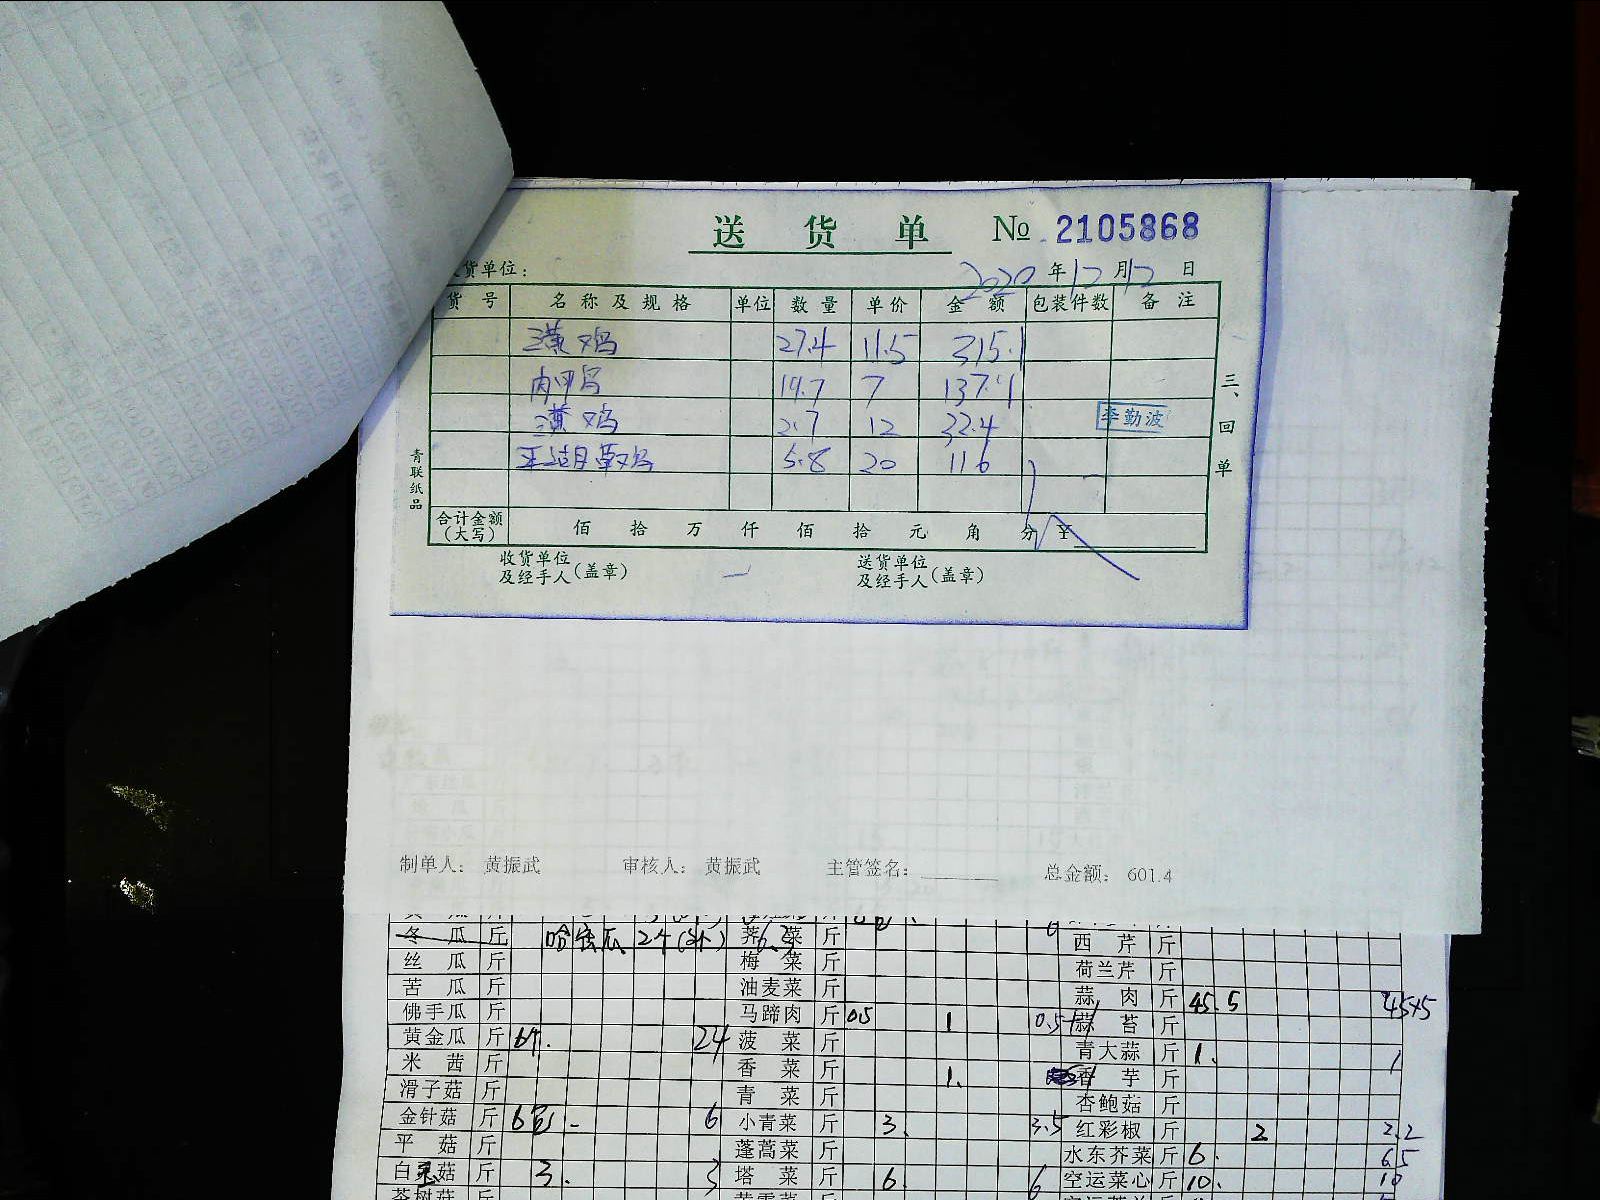 送货单 № 2105868
货单位：
2020年12月12日
货号 名称及规格 单位 数量 单价 金额 包装件数 备注
鸡 27.4 11.5 315.1
19.7 7 137.9
鸡 2.7 12 32.4
李勤波
5.8 20 116
三、回单
青联纸品
合计金额（大写） 佰 拾 万 仟 佰 拾 元 角 分 ￥
收货单位及经手人（盖章）
送货单位及经手人（盖章）
制单人： 黄振武 审核人： 黄振武 主管签名：________ 总金额： 601.4
冬瓜 斤 哈密瓜 2个 荠菜 斤 西芹 斤
丝瓜 斤 梅菜 斤 荷兰芹 斤
苦瓜 斤 油麦菜 斤 蒜肉 斤 45.5
佛手瓜 斤 马蹄肉 斤 0.5 1 蒜苔 斤
黄金瓜 斤 24 菠菜 斤 青大蒜 斤 1. 1
米茜 斤 香菜 斤 1. 香芋 斤
滑子菇 斤 青菜 斤 杏鲍菇 斤
金针菇 斤 6包 6 小青菜 斤 3. 3.5 红彩椒 斤 2 2.2
平菇 斤 蓬蒿菜 斤 水东芥菜 斤 6. 6.5
白玉菇 斤 3. 3 塔菜 斤 6. 6 空运菜心 斤 10. 10
茶树菇 斤